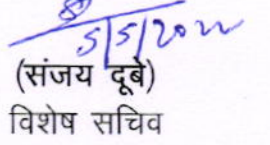 5/5/2022
(संजय दूबे)
विशेष सचिव